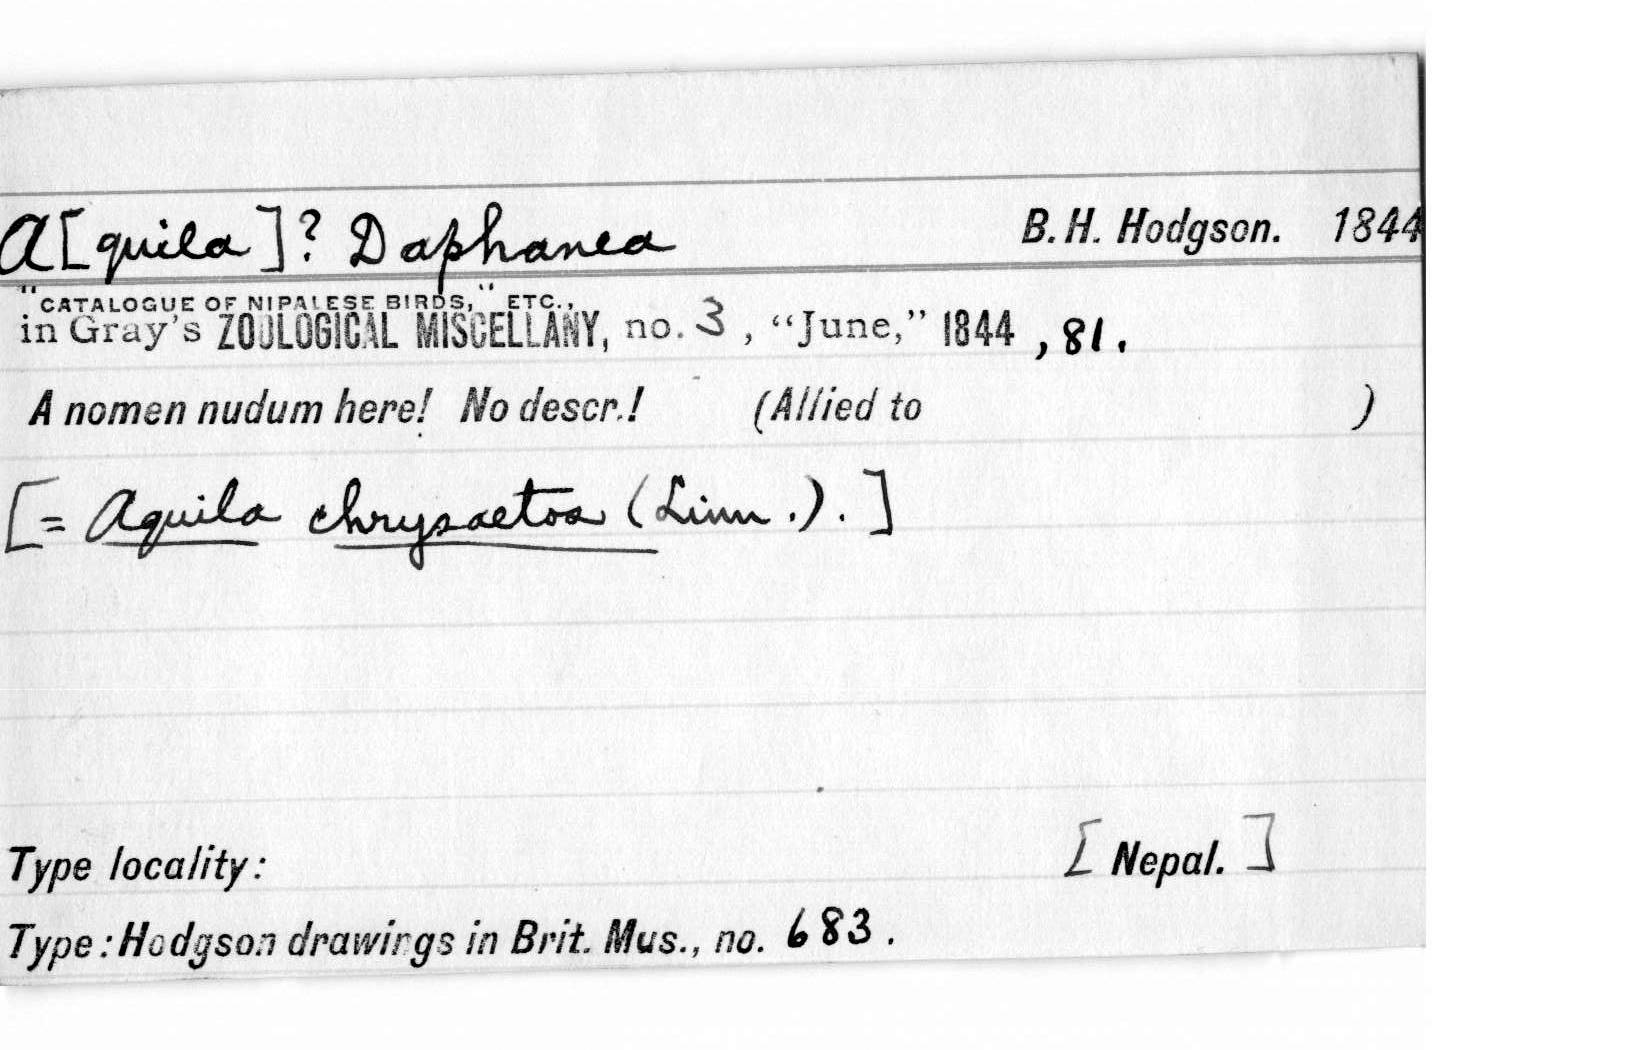 A[quila]? Daphanea B. H. Hodgson. 1844
"CATALOGUE OF NIPALESE BIRDS," ETC.,
in Gray's ZOOLOGICAL MISCELLANY, no. 3, "June," 1844, 81.
A nomen nudum here! No descr.! (Allied to )
[= Aquila chrysaetos (Linn.).]
Type locality: [Nepal.]
Type: Hodgson drawings in Brit. Mus., no. 683.